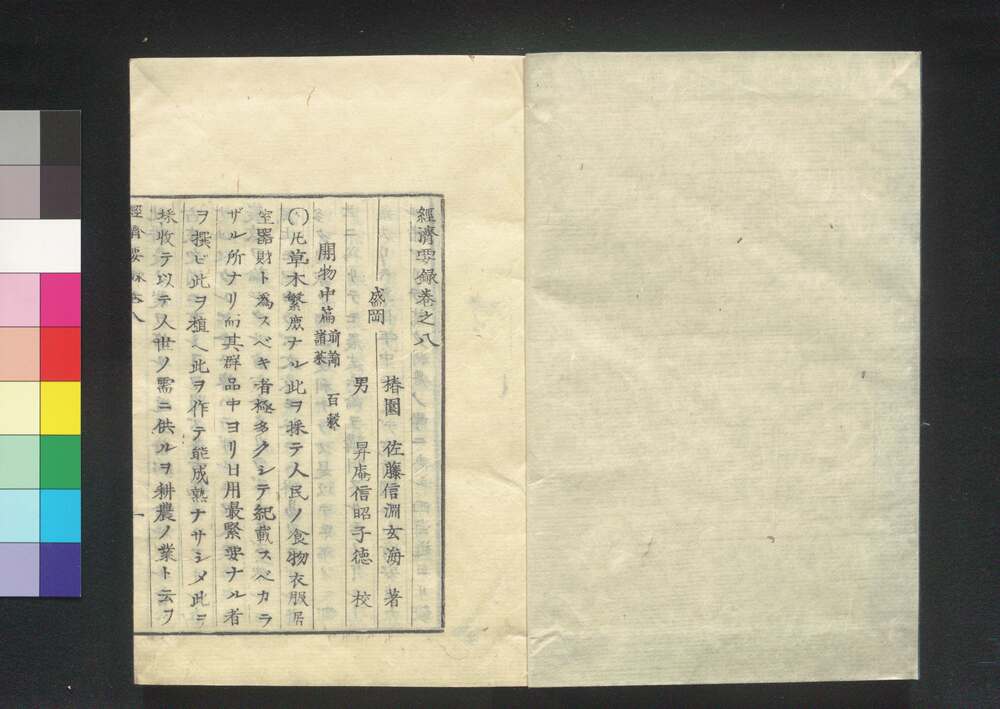 經濟要録巻之八
椿園 佐藤信淵玄海 著
盛岡
男 昇庵信昭子徳 校
開物中篇 百穀
諸菜
〇凡草木繁庶ナル此ヲ採テ人民ノ食物衣服居
室器財ト爲スベキ者極多クシテ紀載スベカラ
ザル所ナリ而其群品中ヨリ日用最緊要ナル者
ヲ撰ビ此ヲ植ヘ此ヲ作テ能成熟ナサシメ此ヲ
採收テ以テ人世ノ需ニ供ルヲ耕農ノ業ト云フ
經濟要録巻八
一